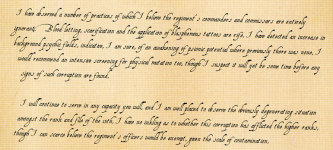 I have observed a number of practices of which I believe the regiment's commanders and commissars are entirely
ignorant. Blood letting, scarification and the application of blasphemous tattoos are rife. I have detected an increase in
background psychic fields, indicative, I am sure, of an awakening of psionic potential where previously there was none. I
would recommend an intensive screening for physical mutation too, though I suspect it will yet be some time before any
signs of such corruption are found.
I will continue to serve in any capacity you will, and I am well placed to observe the obviously degenerating situation
amongst the rank and file of the 11th. I have no inkling as to whether this corruption has afflicted the higher ranks,
though I can scarce believe the regiment's officers would be exempt, given the scale of contamination.